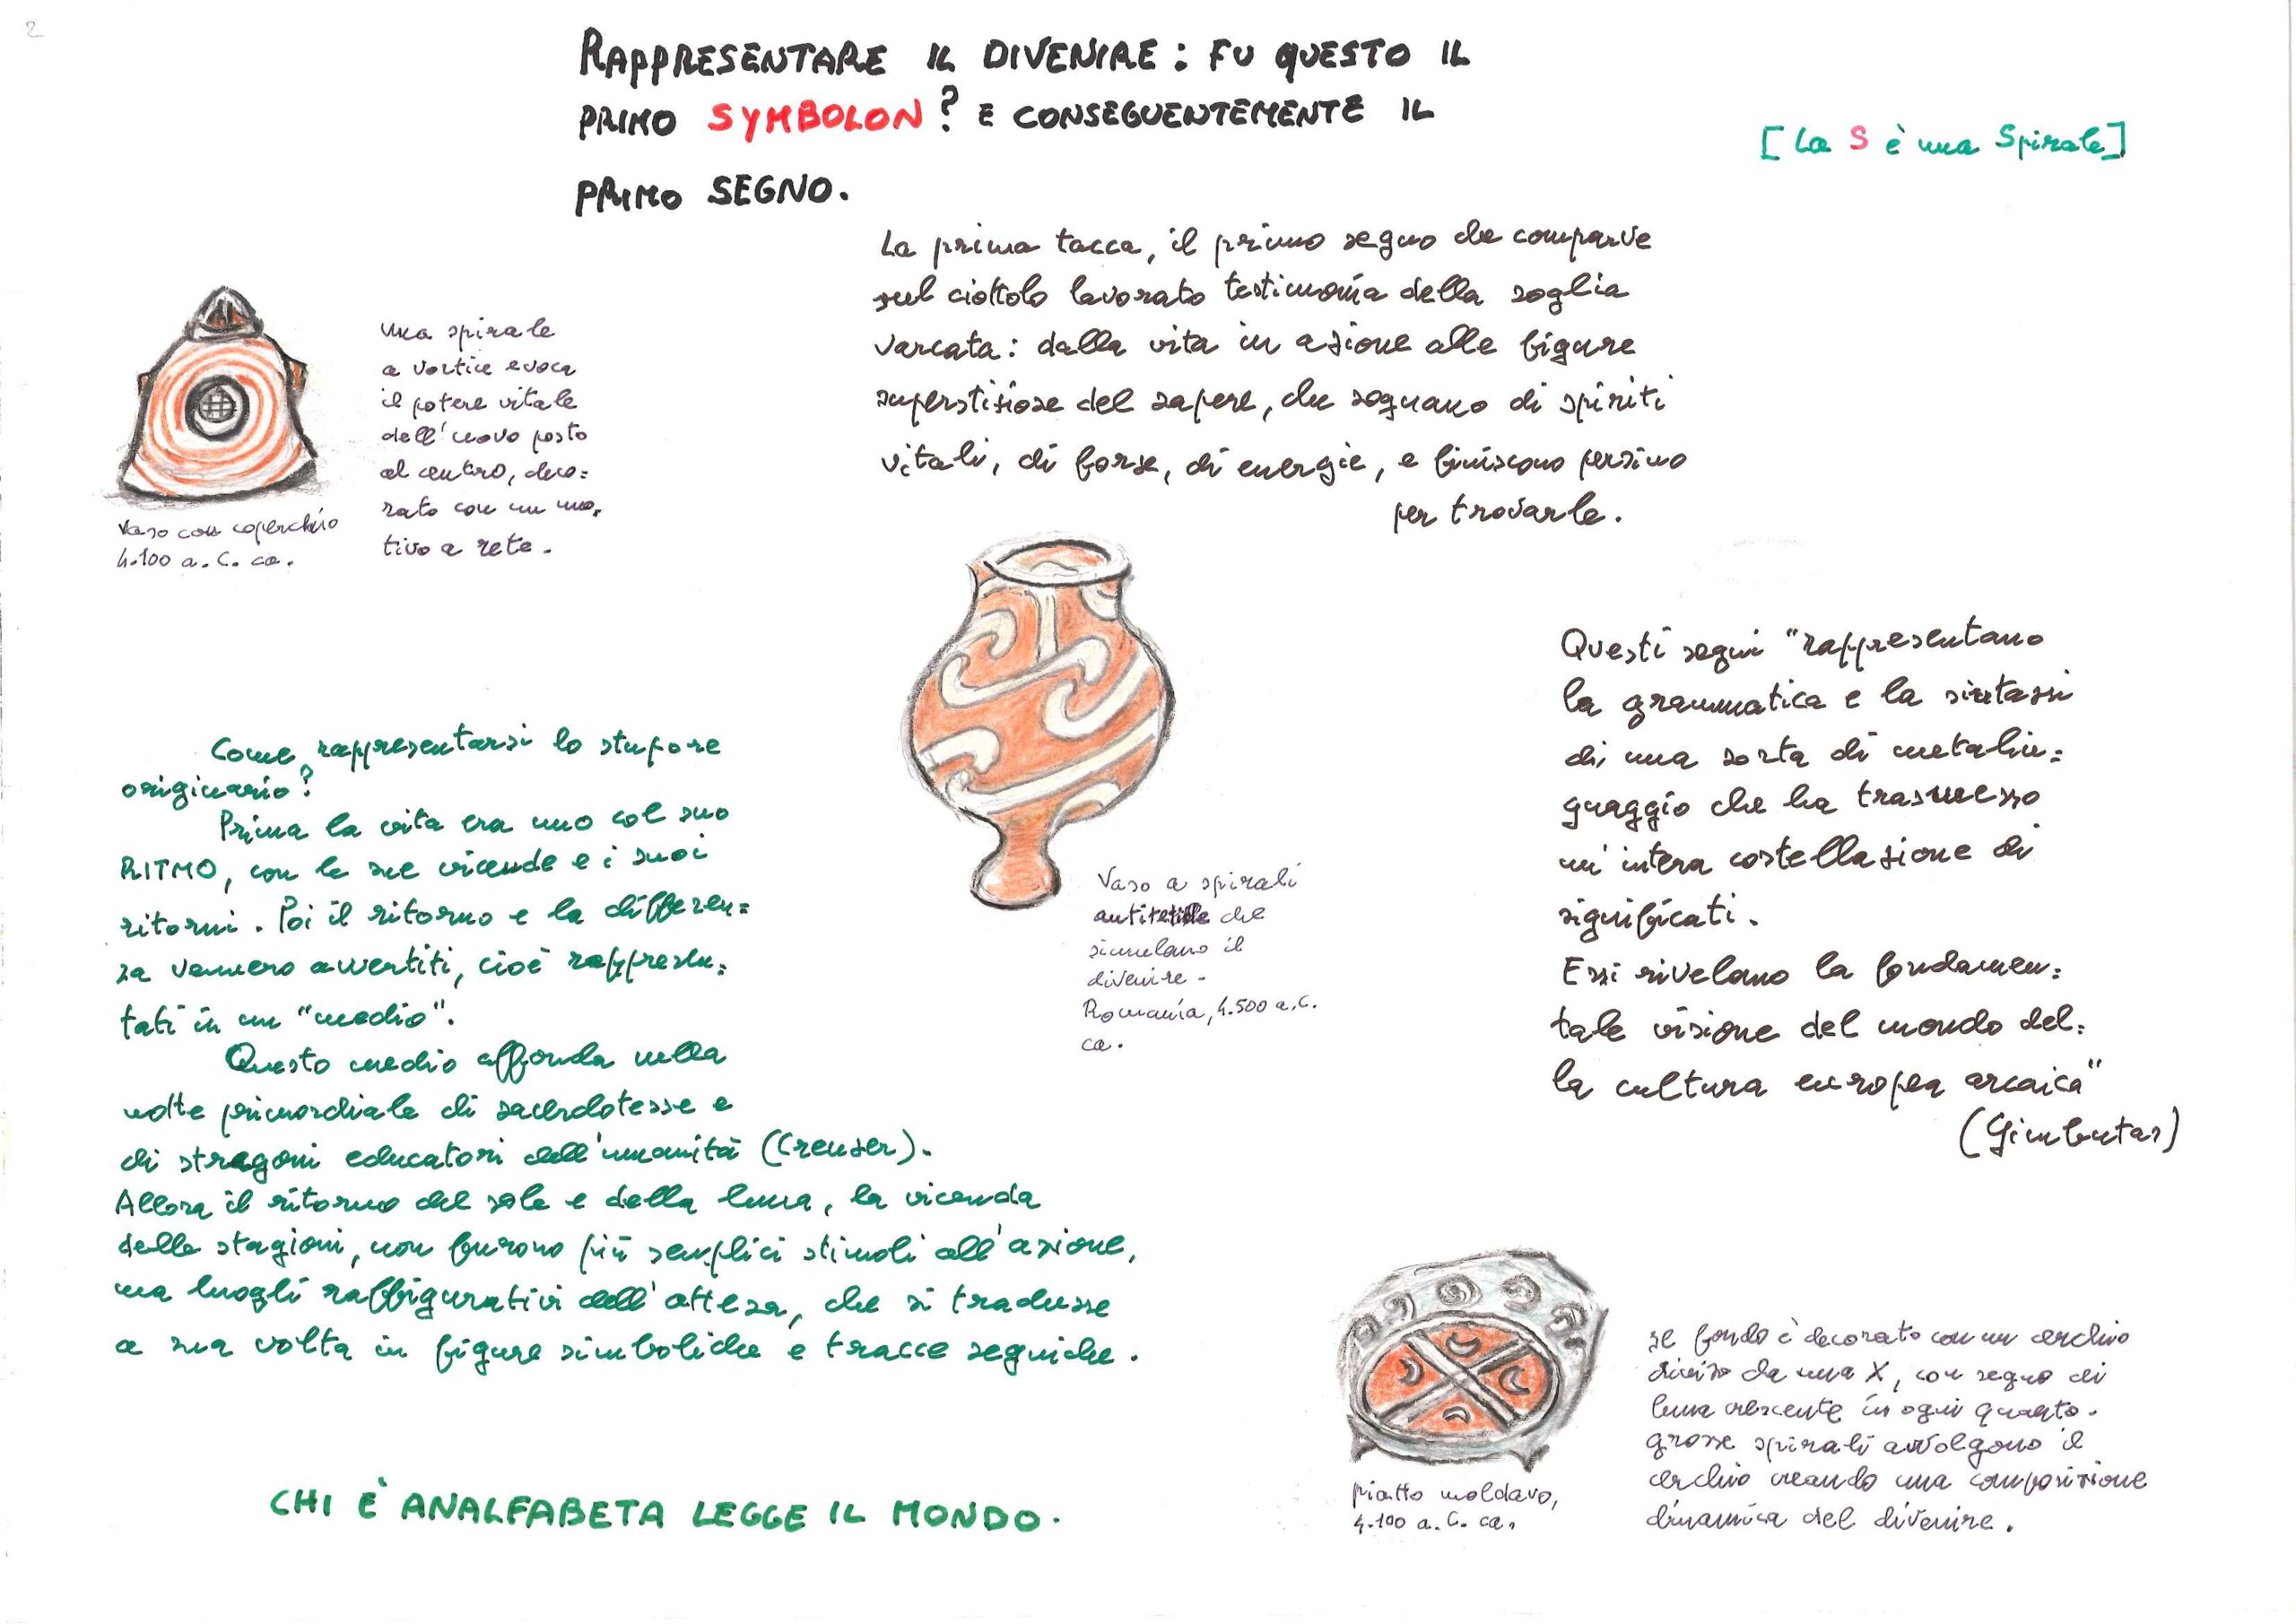 2
RAPPRESENTARE IL DIVENIRE: FU QUESTO IL
PRIMO SYMBOLON? E CONSEGUENTEMENTE IL
PRIMO SEGNO.
[La S è una Spirale]
La prima tacca, il primo segno che comparve
sul ciottolo lavorato testimonia della soglia
varcata: dalla vita in azione alle figure
superstiziose del sapere, che sognano di spiriti
vitali, di forze, di energie, e finiscono persino
per trovarle.
una spirale
a vortice evoca
il potere vitale
dell'uovo posto
al centro, deco=
rato con un mo,
tivo a rete.
Vaso con coperchio
4.100 a.C. ca.
Questi segni "rappresentano
la grammatica e la sintassi
di una sorta di metalin=
guaggio che ha trasmesso
un'intera costellazione di
significati.
Essi rivelano la fondamen=
tale visione del mondo del=
la cultura europea arcaica"
(Gimbutas)
Come rappresentarsi lo stupore
originario?
Prima la vita era uno col suo
RITMO, con le sue vicende e i suoi
ritorni. Poi il ritorno e la differen=
za vennero avvertiti, cioè rappresen=
tati in un "medio".
Questo medio affonda nella
notte primordiale di sacerdotesse e
di stregoni educatori dell'umanità (Creuzer).
Allora il ritorno del sole e della luna, la vicenda
delle stagioni, non furono più semplici stimoli all'azione,
ma luoghi raffigurativi dell'attesa, che si tradusse
a sua volta in figure simboliche e tracce segniche.
Vaso a spirali
antitetiche che
simulano il
divenire.
Romania, 4.500 a.C.
ca.
piatto moldavo,
4.100 a.C. ca.
Il fondo è decorato con un cerchio
diviso da una X, con segno di
luna crescente in ogni quarto.
grosse spirali avvolgono il
cerchio creando una composizione
dinamica del divenire.
CHI È ANALFABETA LEGGE IL MONDO.